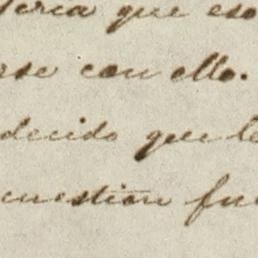 que eso
rse con ello.
decido que le
cuestion fu